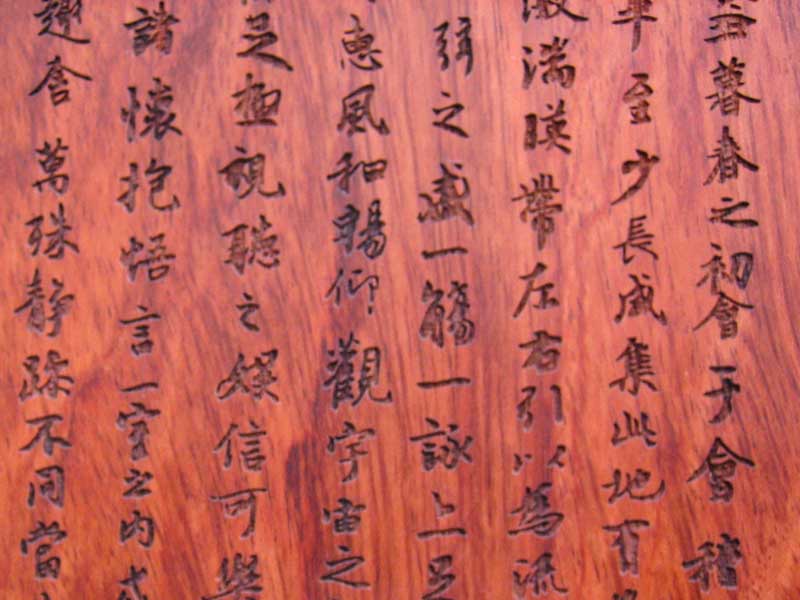 暮春之初會于會稽
至少長咸集此地有
湍暎帶左右引以為流
弦之盛一觴一詠上足
惠風和暢仰觀宇宙之
足極視聽之娛信可樂
諸懷抱悟言一室之內
趣舍萬殊靜躁不同當